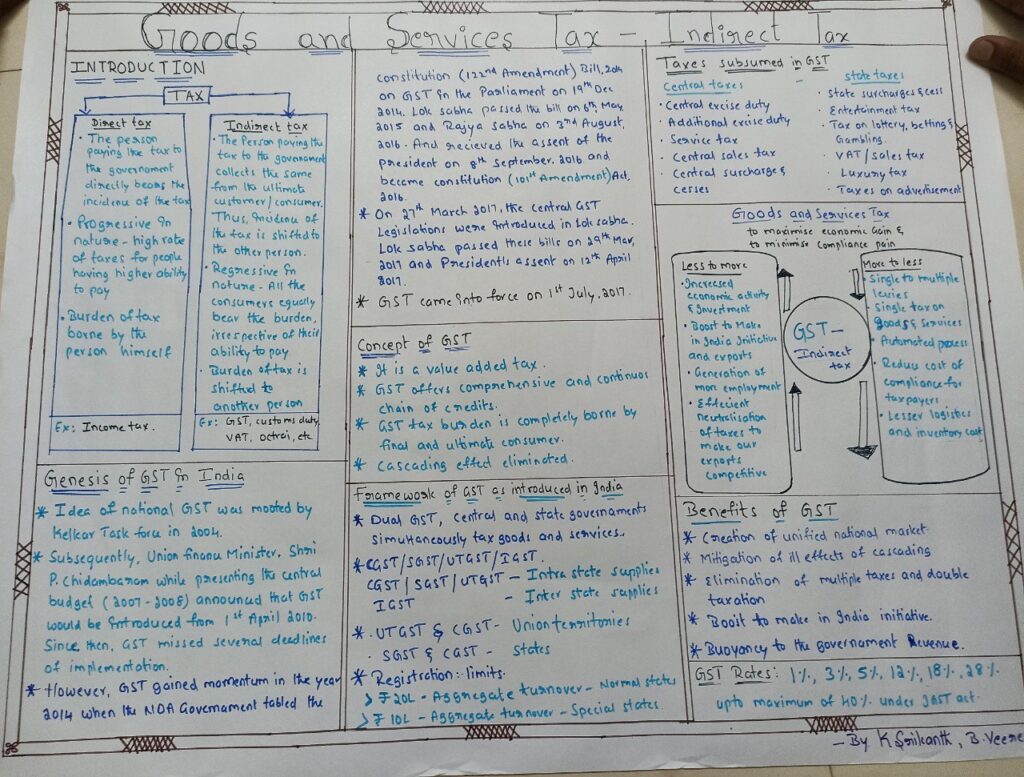 Goods and Services Tax - Indirect Tax
INTRODUCTION
TAX
Direct tax
• The person
paying the tax to
the governoment
directly bears the
incidence of the tax
• Progressive in
nature - high rate
of taxes for people
having higher ability
to pay
• Burden of tax
borne by the
person himself
Ex: Income tax.
Indirect tax
• The Person paying the
tax to the governament
collects the same
from the ultimate
customer/consumer.
Thus, incidence of
the tax is shifted to
the other person.
• Regressive in
nature - All the
consumers equally
bear the burden,
irrespective of their
ability to pay
• Burden of tax is
shifted to
another person
Ex: GST, customs duty,
VAT, octroi, etc
Genesis of GST in India
* Idea of national GST was mooted by
Kelkar Task force in 2004.
* Subsequently, Union finance Minister, Shri
P. Chidambaram while presenting the central
budget (2007-2008) announced that GST
would be introduced from 1st April 2010.
Since then, GST missed several deadlines
of implementation.
* However, GST gained momentum in the year
2014 when the NDA Governament tabled the
constitution (122nd Amendment) Bill, 2014
on GST in the Parliament on 19th Dec
2014. Lok sabha passed the bill on 6th May
2015 and Rajya sabha on 3rd August,
2016. And recieved the assent of the
president on 8th September, 2016 and
became constitution (101st Amendment) Act,
2016.
* On 27th March 2017, the central GST
Legislations were introduced in Lok sabha.
Lok sabha passed these bills on 29th Mar,
2017 and President's assent on 12th April
2017.
* GST came into force on 1st July, 2017.
Concept of GST
* It is a value added tax.
* GST offers comprehensive and continuos
chain of credits.
* GST tax burden is completely borne by
final and ultimate consumer.
* Cascading effect eliminated.
Framework of GST as introduced in India
* Dual GST, central and state governaments
simultaneously tax goods and services.
* CGST/SGST/UTGST/IGST.
CGST/SGST/UTGST - Intra state supplies
IGST - Inter state supplies
* UTGST & CGST - Union territories
. SGST & CGST - States
* Registration: limits.
> ₹ 20L - Aggregate turnover - Normal states
> ₹ 10L - Aggregate turnover - Special states.
Taxes subsumed in GST
Central taxes
• Central excise duty
• Additional excise duty
• Service tax
• Central sales tax
• Central surcharge &
cesses
state taxes
• State surcharges & cess
• Entertainment tax
• Tax on lottery, betting &
Gambling.
• VAT/sales tax
• Luxury tax
• Taxes on advertisement
Goods and Services Tax
to maximise economic Gain &
to minimise compliance pain
Less to more
• Increased
economic activity
& Investment
• Boost to Make
in India Initiative
and exports
• Generation of
more employment
• Effecient
neutralisation
of taxes to
make our
exports
competitive
GST -
Indirect
tax
More to less
• Single to multiple
levies
• Single tax on
goods & services
• Automated process
• Reduce cost of
compliance for
taxpayers
• Lesser logistics
and inventory cost
Benefits of GST
* Creation of unified national market
* Mitigation of ill effects of cascading
* Elimination of multiple taxes and double
taxation
* Boost to make in India initiative.
* Buoyancy to the governament Revenue.
GST Rates: 1%, 3%, 5%, 12%, 18%, 28%
upto maximum of 40% under IGST act.
- By K Srikanth, B. Veere